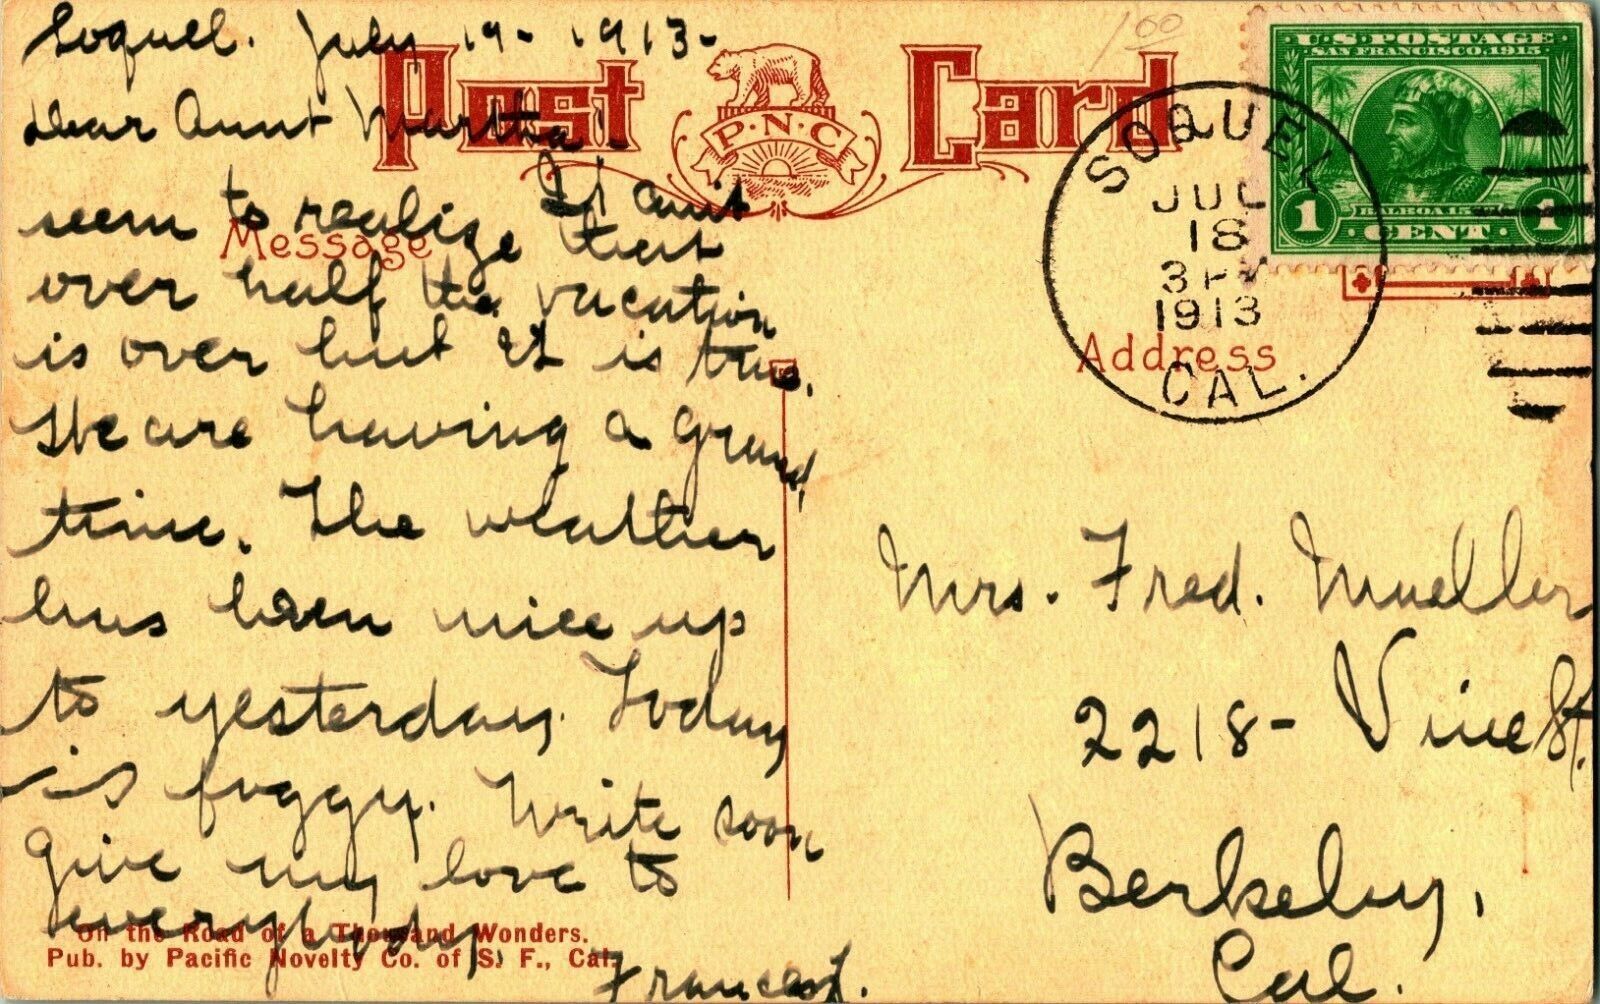 Soquel. July 19 - 1913 -
Post Card
P.N.C
Dear Aunt Martha:
It can't
seem to realize that
over half the vacation
is over but it is true.
We are having a grand
time. The weather
has been nice up
to yesterday. Today
is foggy. Write soon
Give my love to
everybody.
Frances
Message
On the Road of a Thousand Wonders.
Pub. by Pacific Novelty Co. of S. F., Cal.
1.00
U·S·POSTAGE
SAN FRANCISCO, 1915
BALBOA 1513
1 CENT 1
SOQUEL
JUL
18
3 PM
1913
CAL.
Address
Mrs. Fred. Mueller
2218 - Vine St.
Berkeley,
Cal.